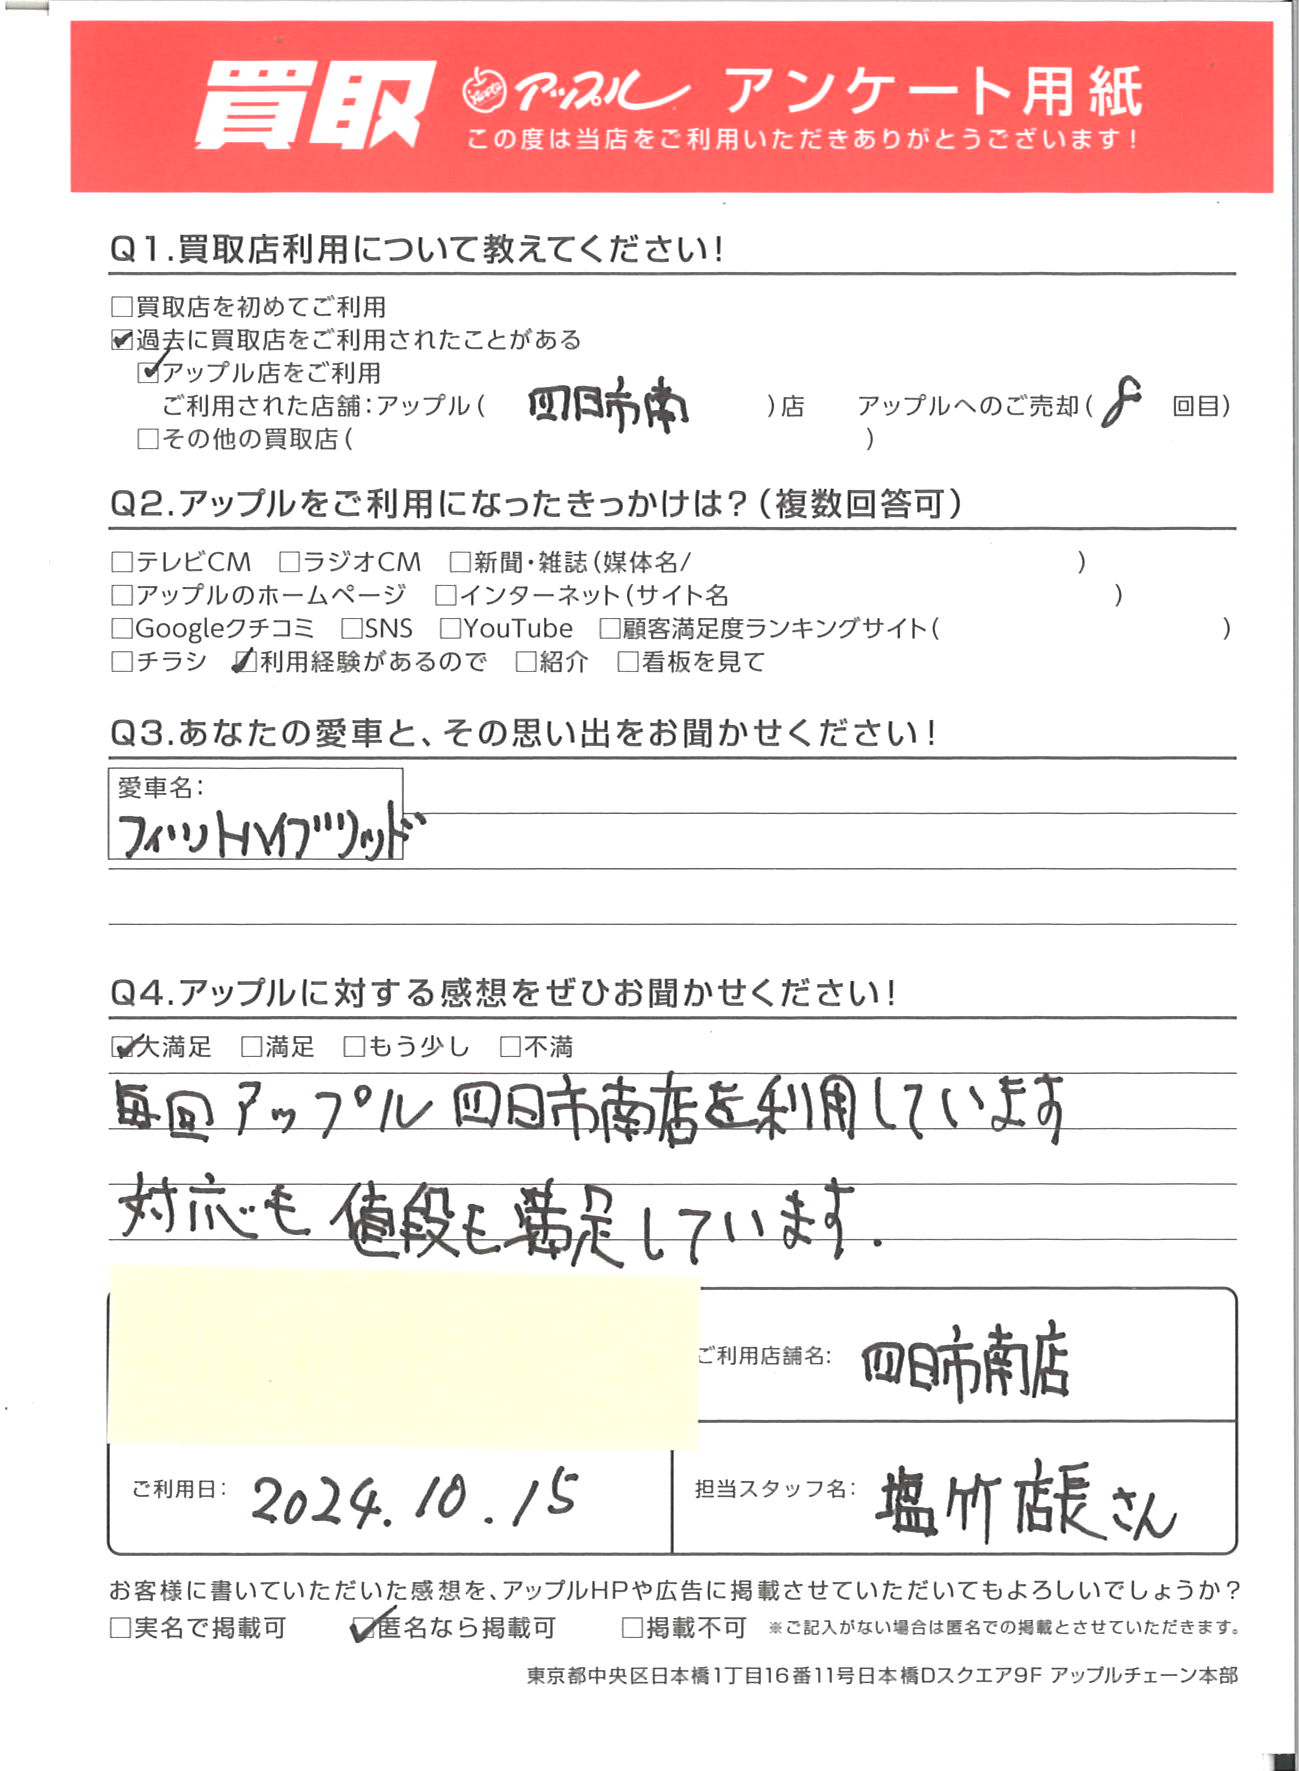 買取 アップル アンケート用紙
この度は当店をご利用いただきありがとうございます！
Q1.買取店利用について教えてください！
□買取店を初めてご利用
☑過去に買取店をご利用されたことがある
☑アップル店をご利用
ご利用された店舗：アップル（ 四日市南 ）店 アップルへのご売却（ 8 回目）
□その他の買取店（ ）
Q2.アップルをご利用になったきっかけは？（複数回答可）
□テレビCM □ラジオCM □新聞・雑誌（媒体名/ ）
□アップルのホームページ □インターネット（サイト名 ）
□Googleクチコミ □SNS □YouTube □顧客満足度ランキングサイト（ ）
□チラシ ☑利用経験があるので □紹介 □看板を見て
Q3.あなたの愛車と、その思い出をお聞かせください！
愛車名：
フィットハイブリッド
Q4.アップルに対する感想をぜひお聞かせください！
☑大満足 □満足 □もう少し □不満
毎回アップル四日市南店を利用しています
対応も値段も満足しています.
ご利用店舗名： 四日市南店
ご利用日： 2024.10.15 担当スタッフ名： 塩竹店長さん
お客様に書いていただいた感想を、アップルHPや広告に掲載させていただいてもよろしいでしょうか？
□実名で掲載可 ☑匿名なら掲載可 □掲載不可 ※ご記入がない場合は匿名での掲載とさせていただきます。
東京都中央区日本橋1丁目16番11号日本橋Dスクエア9F アップルチェーン本部